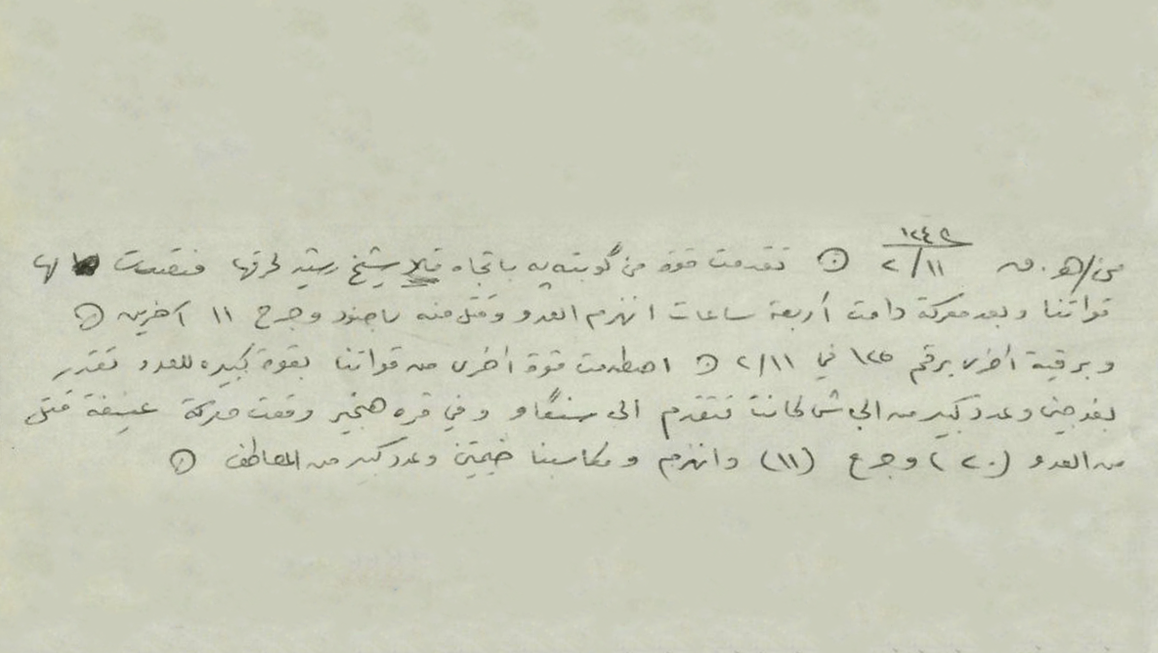 ١٢٤٢
من/هـ.ق ٢/١١ ⊙ تقدمت قوة من گوبتە پە باتجاه قلا شيخ رشيد لحرقها فتصدت لها
قواتنا وبعد معركة دامت أربعة ساعات انهزم العدو وقتل منه جنود وجرح ١١ آخرين ⊙
وبرقية أخرى برقم ١٢٥ في ٢/١١ ⊙ اصطدمت قوة أخرى من قواتنا بقوة كبيرة للعدو تقدر
بفوجين وعدد كبير من الجاش كانت تتقدم الى سنگاو وفي قره هنجير وقعت معركة عنيفة قتل
من العدو (٢٠) وجرح (١١) وانهزم ومكاسبنا خيمتين وعدد كبير من المعاطف ⊙